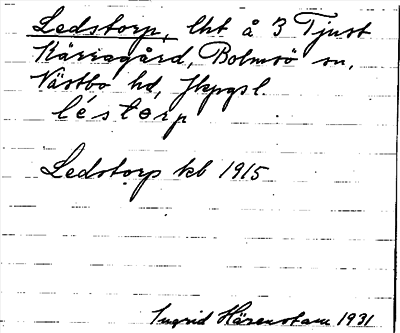 Ledstorp, lht å 3 Tjust
Kärragård, Bolmsö sn,
Västbo hd, Jkpgs l
léstorp
Ledstorp kb 1915
Ingrid Härenstam 1931